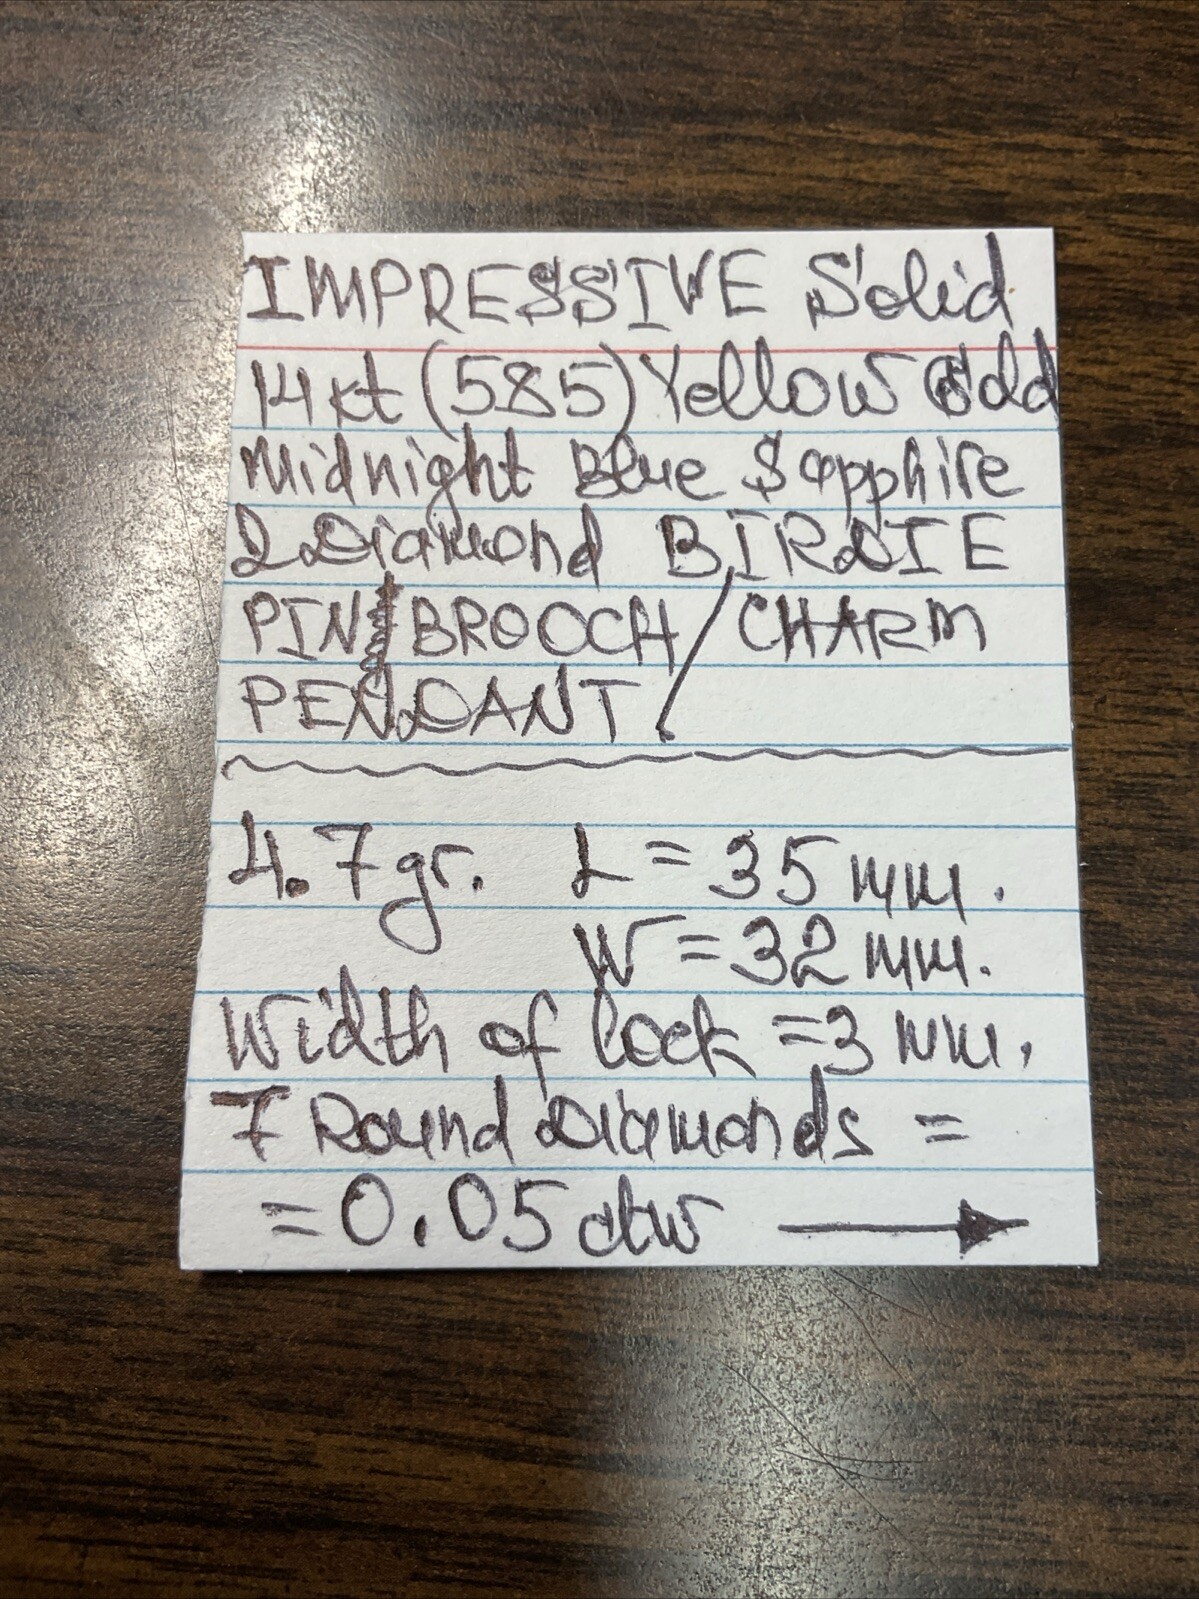 IMPRESSIVE Solid
14kt (585) Yellow Gold
Midnight Blue Sapphire
& Diamond BIRDIE
PIN BROOCH / CHARM
PENDANT
4.7gr. L = 35 mm.
W = 32 mm.
Width of lock = 3 mm.
7 Round Diamonds =
= 0.05 dtw